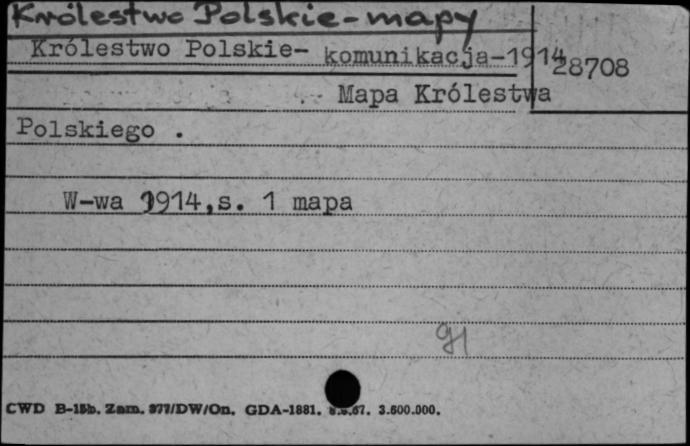 Królestwo Polskie-mapy
Królestwo Polskie- komunikacja-1914
28708
Mapa Królestwa
Polskiego .
W-wa 1914,s. 1 mapa
91
CWD B-15b. Zam. 377/DW/On. GDA-1881. 67. 3.600.000.